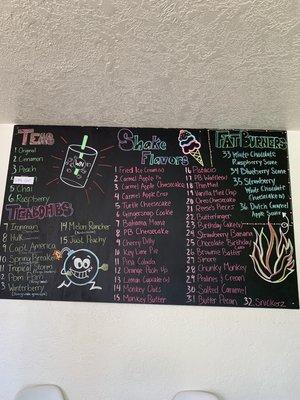 TEAS
1 Original
2 Cinnamon
3 Peach
4
5 Chai
6 Raspberry
TEABOMBS
7 Ironman
8 Hulk
9 Capt. America
10 Spring Breaker
11 Tropical Storm
12
13 Winterberry
14 Melon Rancher
15 Just Peachy
Shake
Flavors
1 Fried Ice Cream
2 Carmel Apple Pie
3 Carmel Apple Cheesecake
4 Carmel Apple Crisp
5 Turtle Cheesecake
6 Gingersnap Cookie
7 Bahama Mama
8 PB Cheesecake
9 Cherry Dilly
10 Key Lime Pie
11 Pina Colada
12 Orange Push Up
13 Lemon Cupcake
14 Monkey Outs
15 Monkey Butter
16 Pistachio
17 PB Wafflebar
18 Thin Mint
19 Vanilla Mint Chip
20 Cheesecake
21 Reese's Pieces
22 Butterfinger
23 Birthday Cake
24 Strawberry Banana
25 Chocolate Birthday
26 Brown Cookie
27 Smore
28 Chunky Monkey
29 Pralines & Cream
30 Salted Caramel
31 Butter Pecan
32 Snickerz
FAT BURNERS
33 White Chocolate
Raspberry Scone
34 Blueberry Scone
35 Strawberry
White Chocolate
Cheesecake
36 Dutch Caramel
Apple Scone